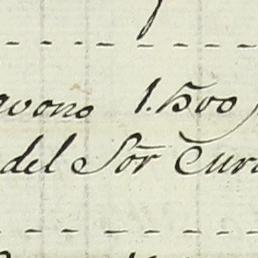 avono 1.500
del Sõr Cura